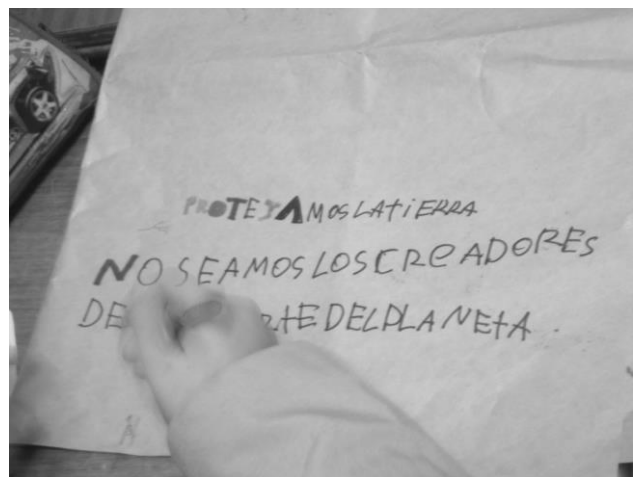 PROTEJAMOS LA TiERRA
NO SEAMOS LOS CReADORES
DE DEL PLANEtA.